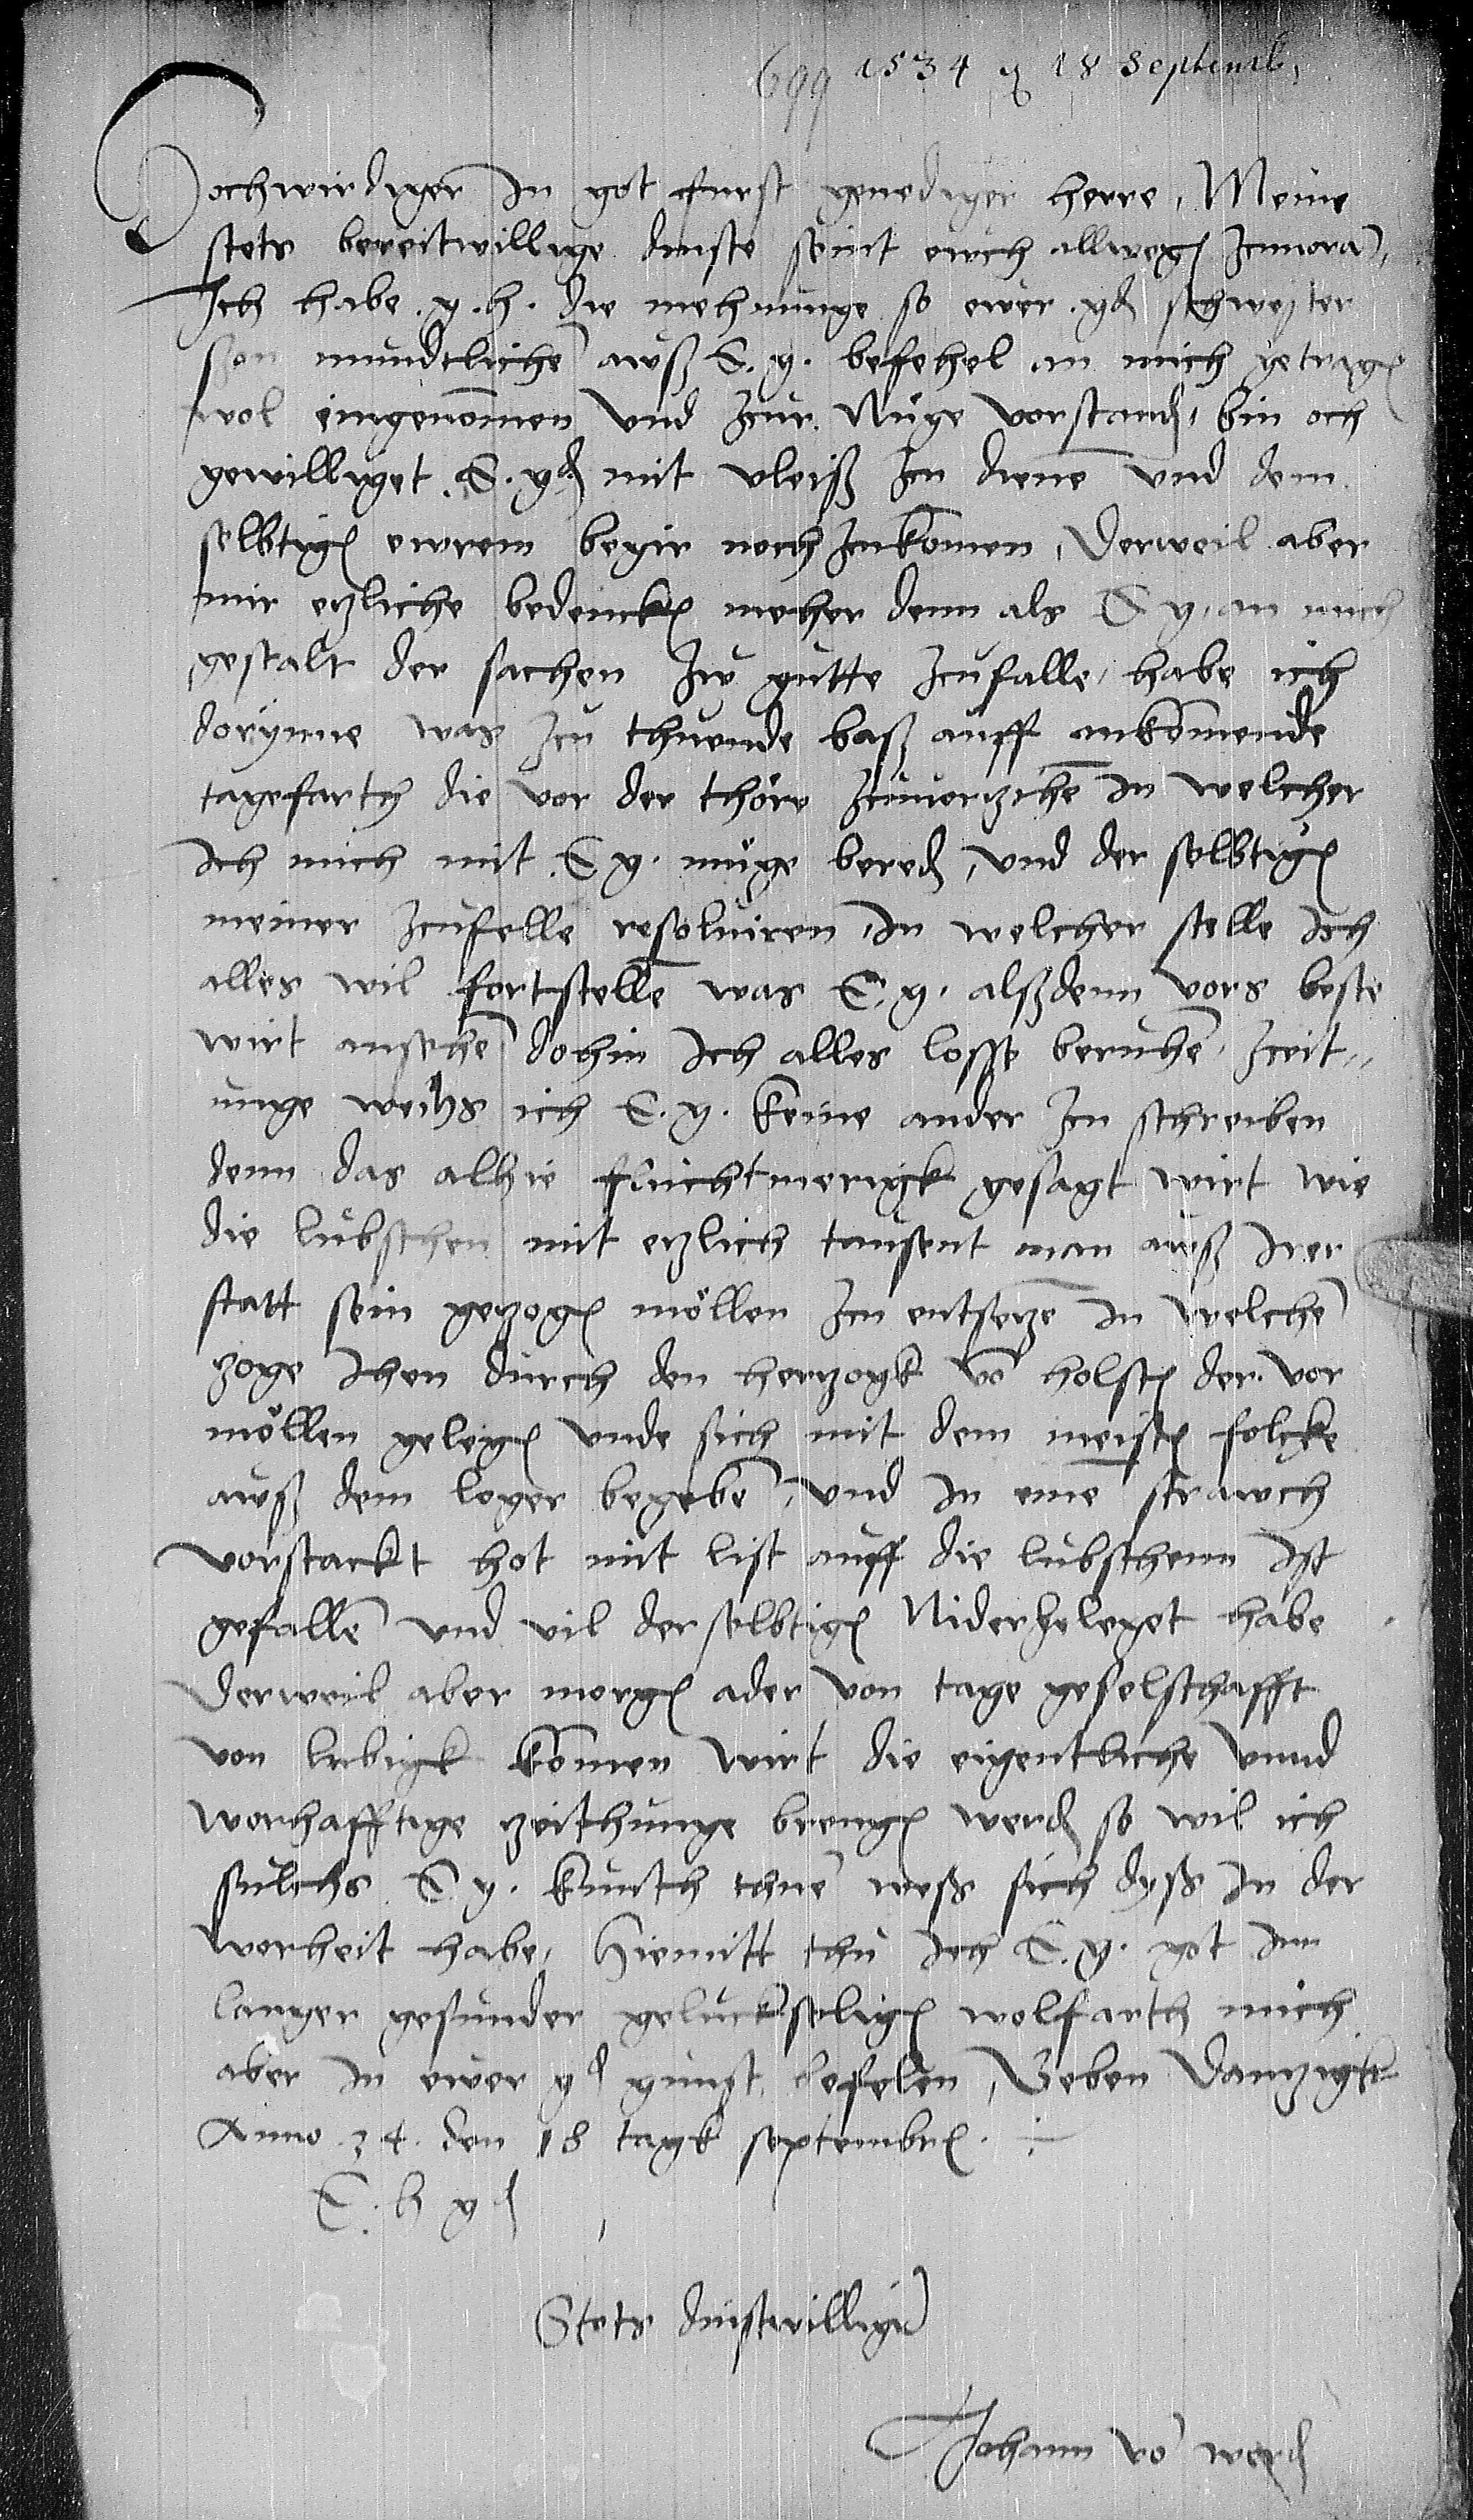 699 1534 18 Septemb.
Hochwirdiger In got furst genediger herre, Meine
stets bereitwillige dinste seint euch allweg zcuuora,
Ich habe g. h. die mehnunge so ewer gd schwester
sson mundtliche auß E. g. befehel an mich getrag
wol eingenomen vnd zcur Nuge vorstand, bin och
gewilliget E. gd mit vleiß zcu diene vnd dem
selbtig ewrem begir noch zcukomen, derweil aber
mir ezliche bedenck meher denn als E g. an mich
gestalt der sachen zcu gutte zcufalle, habe ich
dorynne was zcu thuende baß auff ankomende
tagefarth die vor der thöre zcuuorzihe in welcher
Ich mich mit E g. müge bered, vnd der selbtig
meiner zcufelle resoluiren, in welcher stelle Ich
alles wil fortstelle was E. g. alßdenn vors beste
wirt ansehe dohin Ich alles losse beruhe, zceit,,
unge weihs ich E. g. keine ander zcu schreiben
denn das alhie fluchtmerigk gesagt wirt wie
die lubschen mit ezlich tausent man auß irer
statt sein gezog möllen zcu entseze in welche
zoge ihen durch den herzogk vo holst der vor
möllen geleg vnde sich mit dem meist folcke
auß dem loger begebe, vnd in eine strauch
vorstackt hot mit list auff die lubschenn ist
gefalle vnd vil der selbtig Niderheleget habe
derweil aber morg ader von tage geselschafft
von lubigk komen wirt die eigentliche vnnd
worhafftige zeithunge breng werd so wil ich
sulchs E g. kunth thue weß sich dyß in der
worheit habe, hiemitt thu Ich E. g. got inn
langer gesunder geluckselig wolfarth mich
aber in ewer gd gunst befelen, Geben Danzigk
Anno 34. den 18 tagk septembr.
E. h gd
Stets dinstwillig
Johann vo werd